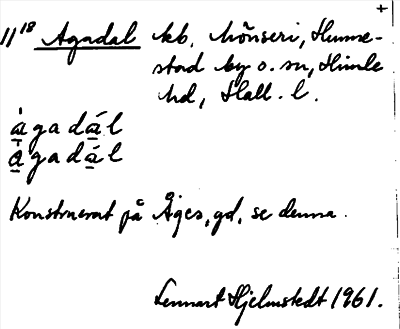 +
11¹⁸ Agadal kb. hönseri, Hunne-
stad by o. sn, Himle
hd, Hall. l.
àgadál
àgadál
Konstruerat på Åges, gd, se denna.
Lennart Hjelmstedt 1961.